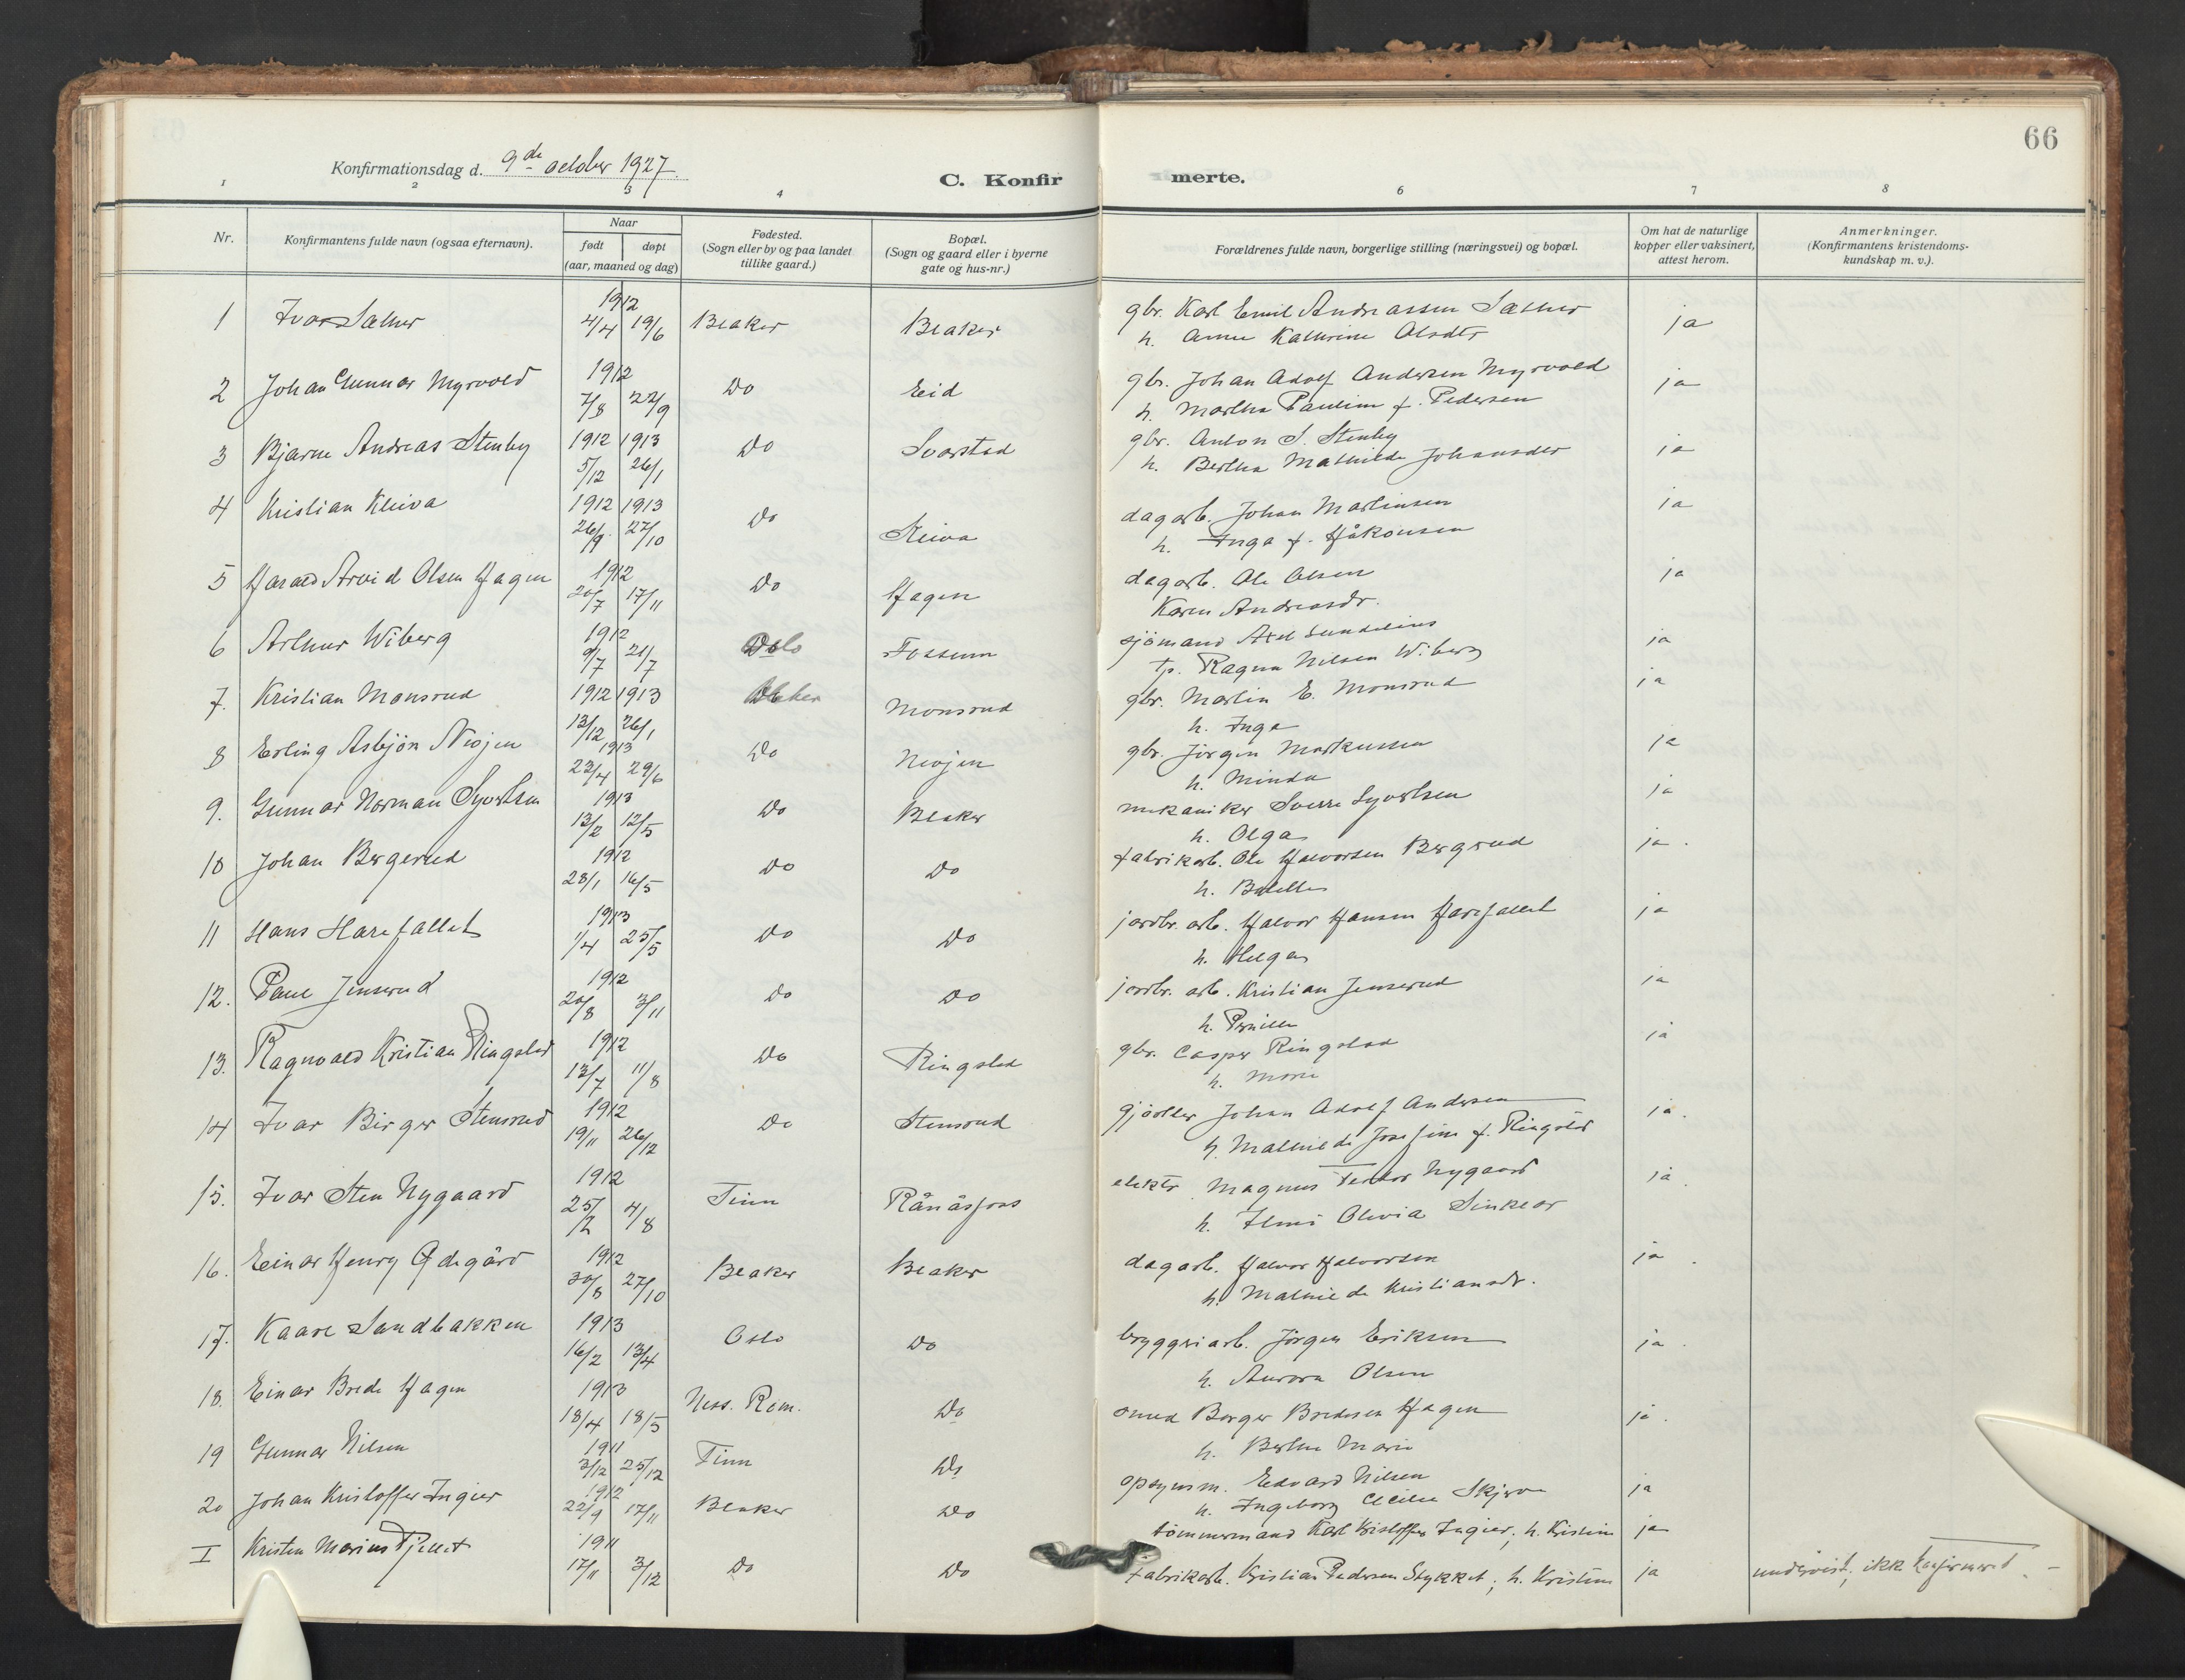 66
Konfirmationsdag d. 9de october 1927.
C. Konfirmerte.
1 2 3 4 6 7 8
Nr.
Konfirmantens fulde navn (ogsaa efternavn).
Naar
født døpt
(aar, maaned og dag)
Fødested.
(Sogn eller by og paa landet
tillike gaard.)
Bopæl.
(Sogn og gaard eller i byerne
gate og hus-nr.)
Forældrenes fulde navn, borgerlige stilling (næringsvei) og bopæl.
Om hat de naturlige
kopper eller vaksinert,
attest herom.
Anmerkninger.
(Konfirmantens kristendoms-
kundskap m. v.).
1 Ivar Sæther 1912 4/4 19/6 Blaker Blaker gbr. Karl Emil Andreassen Sæther ja
h. Anne Kathrine Olsdtr
2 Johan Gunnar Myrvold 1912 7/8 22/9 Do Eid gbr. Johan Adolf Andersen Myrvold ja
h. Martha Pauline f. Pedersen
3 Bjarne Andreas Stenby 1912 1913 5/12 26/1 Do Svarstad gbr. Anton S. Stenby ja
h. Bertha Mathilde Johansder
4 Kristian Kleiva 1912 1913 26/9 27/10 Do Kleiva dagarb. Johan Martinsen ja
h. Inga f. Håkonsen
5 Harald Arvid Olsen Hagen 1912 20/7 17/11 Do Hagen dagarb. Ole Olsen ja
Karen Andreasdr.
6 Arthur Wiberg 1912 9/7 21/7 Oslo Fossum sjömand Axel Lundelius ja
tp. Ragna Nilsen Wiberg
7. Kristian Monsrud 1912 1913 13/12 26/1 Monsrud gbr. Martin E. Monsrud ja
h. Inga
8 Erling Asbjön Niojen 1913 23/4 29/6 Do Niojen gbr. Jörgen Markussen ja
h. Minda
9. Gunnar Norman Syvertsen 1913 13/2 12/5 Do Blaker mekaniker Sverre Syvertsen ja
h. Olga
10 Johan Bergerud 1912 28/1 16/5 Do Do fabrikarb. Ole Halvorsen Bergrud ja.
h.
11 Hans Harefallet 1913 1/4 25/5 Do Do jordbr. arb. Halvor Hansen Harefallet ja
h. Helga
12. Paul Jenserud 1912 20/8 3/11 Do Do jordbr. arb. Kristian Jenserud ja
h. Pernille
13. Ragnvald Kristian Ringstad 1912 13/7 11/8 Do Ringstad gbr. Casper Ringstad ja
h. Marie
14 Ivar Birger Stensrud 1912 19/11 26/12 Do Stensrud gjörtler Johan Adolf Andersen ja.
h. Mathilde Josefine f. Ringstad
15. Ivar Sten Nygaard 1912 25/2 4/8 Tinn Rånåsfoss elektr. Magnus Teodor Nygaard ja.
h. Ilmi Olivia Sinkear
16. Einar Henry Ødegård 1912 30/8 27/10 Blaker Blaker dagarb. Halvor Halvorsen ja.
h. Mathilde Kristiansdr.
17. Kaare Sandbakken 1913 16/2 13/4 Oslo Do bryggeriarb. Jörgen Eriksen ja.
h. Aurora Olsen
18. Einar Brede Hagen 1913 18/4 18/5 Ness. Rom. Do smed Borger Bredesen Hagen ja.
h. Berthe Marie
19 Gunnar Nilsen 1911 3/12 25/12 Tinn Do opsynsm. Edvard Nilsen ja
h. Ingeborg Cecilie Skjerve
20 Johan Kristoffer Ingier 1912 22/9 17/11 Blaker Do tömmermand Karl Kristoffer Ingier, h. Kristine ja
I Kristen Marius Fjellet 1911 17/11 3/12 Do Do fabrikarb. Kristian Pedersen Stykket; h. Kristine ja undervist; ikke konfirmeret. -